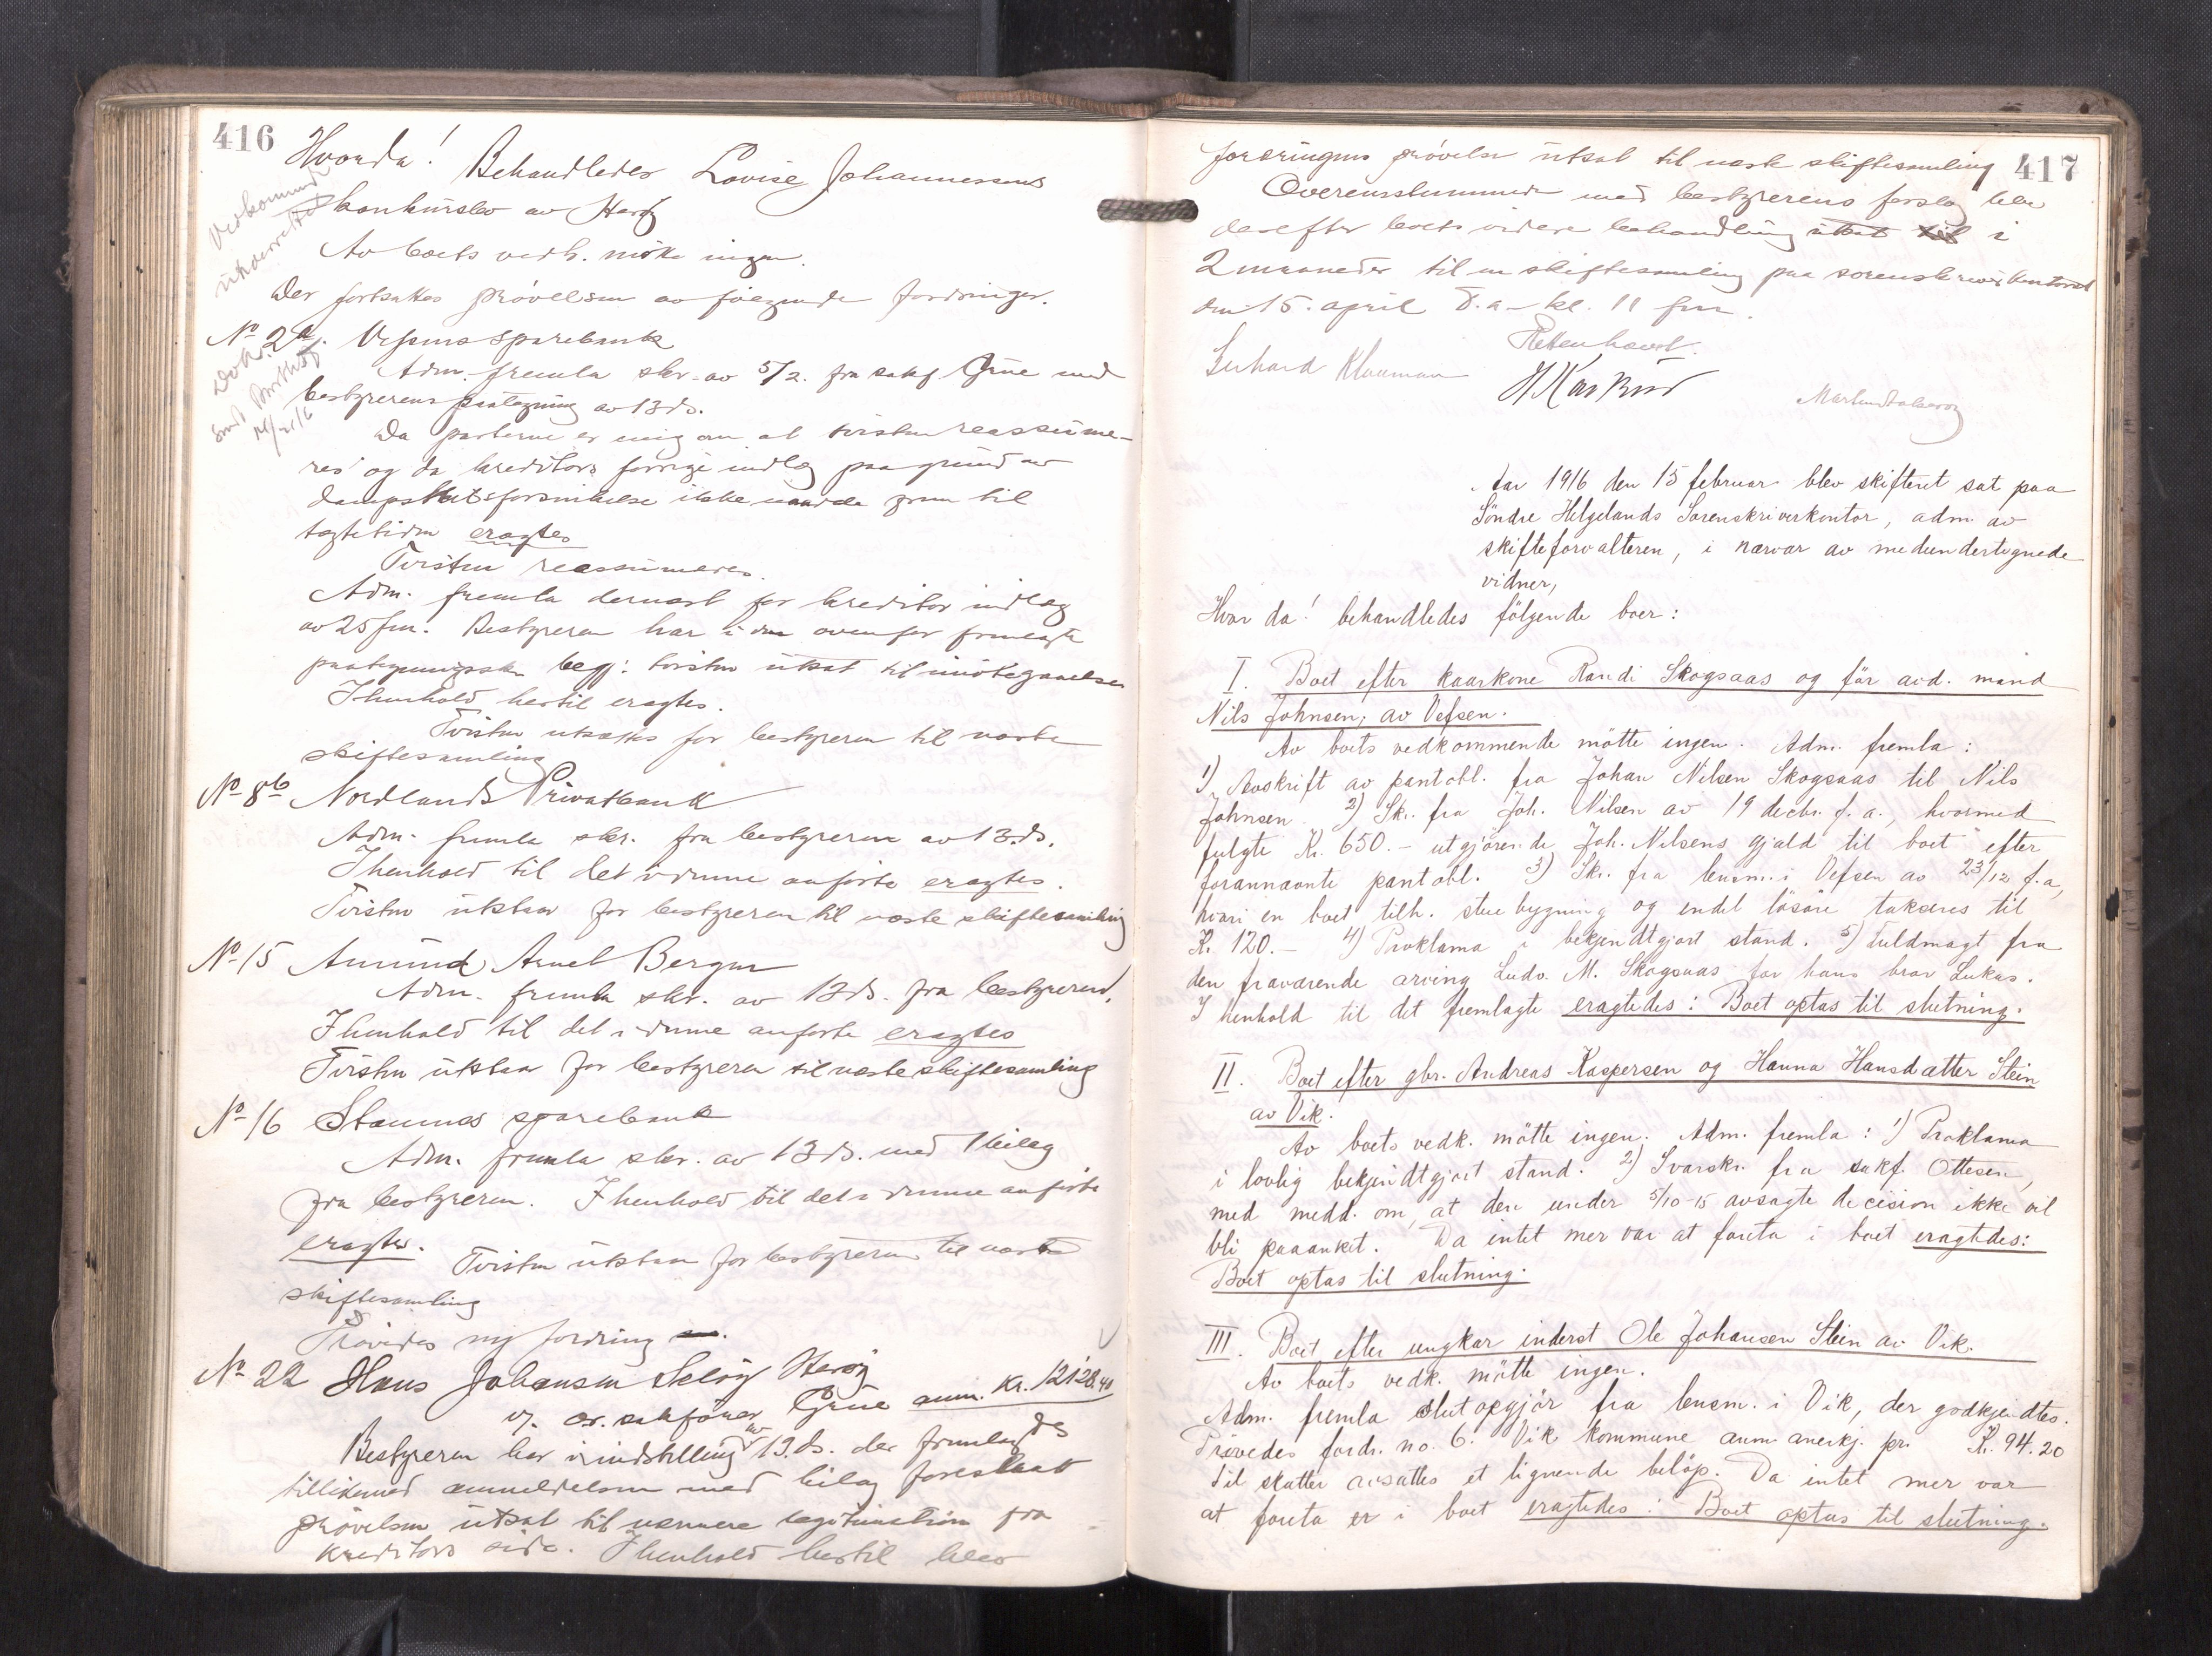 416
Hvorda! Behandledes Lovise Johannessens
konkursbo av Herøy
Av boets vedk. møtte ingen.
Der fortsattes prøvelsen av følgende fordringer.
Vedkommende
underrettet
No 2a. Vefsens sparebank
Adm. fremla skr. av 5/2. fra sakf. Grüe med
bestyrerens paategning av 13 ds.
Da parterne er enig om at tvisten reassüme-
res og da kreditors forrige indlæg paa grund av
dampskibsforsinkelse ikke naadde frem til
tægtetiden eragtes
Tvisten reassümeres.
Adm. fremla dernæst for kreditor indlæg
av 25 jan. Bestyreren har i den ovenfor fremlagte
paategningsskr. begj: tvisten utsat til imøtegaaelse
I henhold hertil eragtes.
Tvisten utsættes for bestyreren til næste
skiftesamling
No 8b Nordlands Privatbank
Adm. fremla skr. fra bestyreren av 13. ds.
I henhold til det i denne anførte eragtes.
Tvisten utstaar for bestyreren til næste skiftesamling
No 15 Amünd Arnel Bergen
Adm. fremla skr. av 13 ds. fra bestyreren.
I henhold til det i denne anførte eragtes
Tvisten utstaar for bestyreren til næste skiftesamling
No 16 Stamnes sparebank
Adm. fremla skr. av 13 ds. med 1 bilag
fra bestyreren. I henhold til det i denne anførte
eragtes. Tvisten utstaar for bestyreren til næste
skiftesamling
Prøvedes ny fordring
No 22 Hans Johansen Seløy Herøy
v. o.r. sakfører Grüe anm. Kr. 12128.40
Bestyreren har i indstilling av 13. ds. der fremlagdes
tillikemed anmeldelsen med bilag foreslaat
prøvelsen utsat til nærmere legitimation fra
kreditors side. I henhold hertil blev
417
fordringens prøvelse utsat til næste skiftesamling
Overensstemmende med bestyrerens forslag blev
derefter boets videre behandling utsat til i
2 maaneder til en skiftesamling paa sorenskriverkontoret
den 15. april d.a. kl. 11 fm.
Retten hævet.
Gerhard Klausman
Aar 1916 den 15 februar blev skifteret sat paa
Søndre Helgelands Sorenskriverkontor, adm. av
skifteforvalteren, i nærvær av medundertegnede
vidner,
Hvor da! behandledes følgende boer:
I. Boet efter kaarkone Randi Skogsaas og før avd. mand
Nils Johnsen, av Vefsen.
Av boets vedkommende møtte ingen. Adm. fremla:
1) Avskrift av pantobl. fra Johan Nilsen Skogsaas til Nils
Johnsen. 2) Skr. fra Joh. Nilsen av 19 decbr. f.a., hvormed
fulgte Kr. 650.- utgjørende Joh. Nilsens gjæld til boet efter
forannævnte pantobl. 3) Skr. fra lensm. i Vefsen av 23/12 f.a,
hvori en boet tilh. stuebygning og endel løsøre takseres til
Kr. 120.- 4) Proklama i bekjendtgjort stand. 5) Fuldmagt fra
den fraværende arving Ludv. M. Skogsaas for hans bror Lukas.
I henhold til det fremlagte eragtedes: Boet optas til slutning.
II. Boet efter gbr. Andreas Kaspersen og Hanna Hansdatter Stein
av Vik.
Av boets vedk. møtte ingen. Adm. fremla: 1) Proklama
i lovlig bekjendtgjort stand. 2) Svarskr. fra sakf. Ottesen,
med medd. om, at den under 5/10-15 avsagte decision ikke vil
bli paaanket. Da intet mer var at foreta i boet eragtedes:
Boet optas til slutning.
III. Boet efter ungkar inderst Ole Johansen Stein av Vik.
Av boets vedk. møtte ingen.
Adm. fremla slutopgjør fra lensm. i Vik, der godkjendtes.
Prøvedes fordr. no. 6. Vik kommune anm. anerkj. pr. Kr. 94.20
til skatter avsattes et lignende beløp. Da intet mer var
at foreta er i boet eragtedes: Boet optas til slutning.